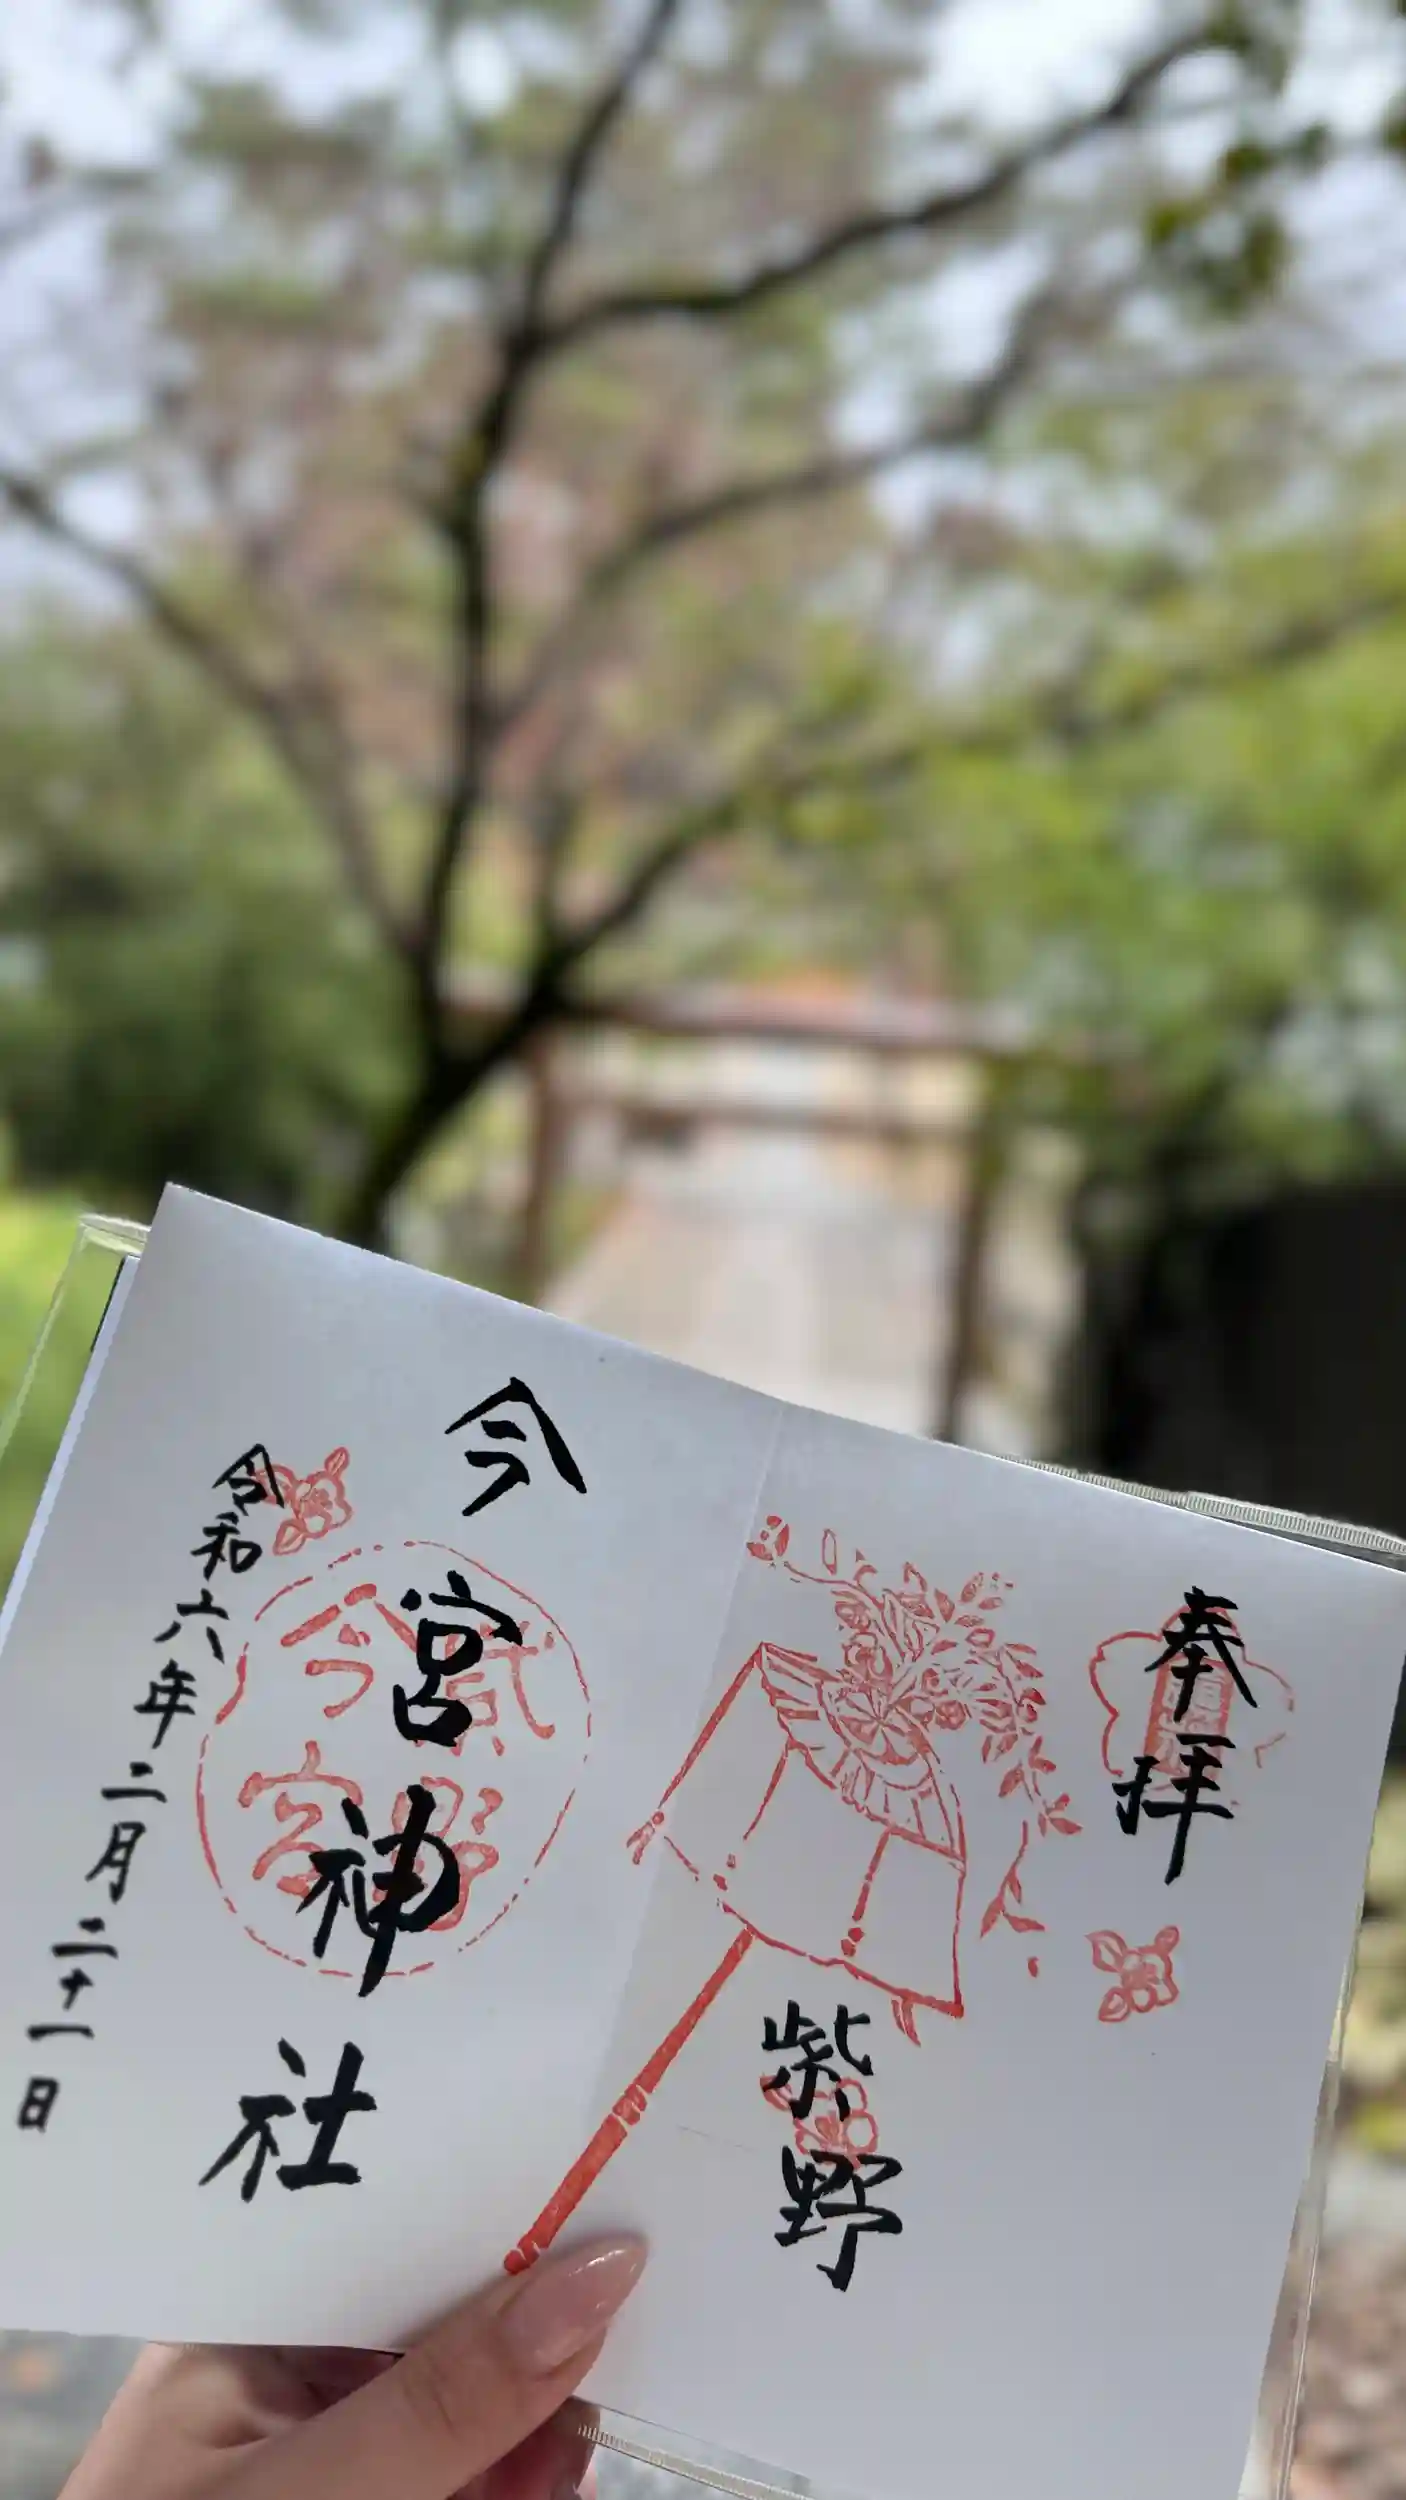 奉拝
紫野
今宮神社
令和六年二月二十一日
紫野
今宮